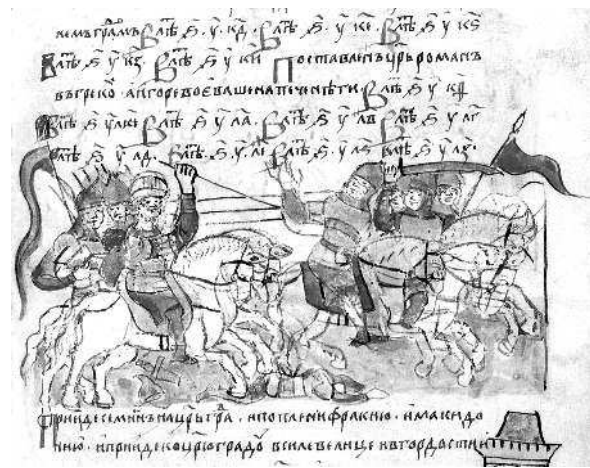 В лⷮѣ ѕ҃ . у҃ . кд҃ . В лⷮѣ ѕ҃ . у҃ ке҃ . В лⷮѣ ѕ҃ у҃ кѕ҃
В лⷮѣ ѕ҃ у҃ кз҃ . В лⷮѣ ѕ҃ у҃ ки҃ Поставленъ цр҃ь романъ
въ греко . а игоре воеваше на печенѣги . В лⷮѣ ѕ҃ у҃
В лⷮѣ ѕ҃ у҃ В лⷮѣ ѕ҃ у҃ ла҃ . В лⷮѣ ѕ҃ у҃ лв҃ В лⷮѣ ѕ҃ у҃ лг҃
В лⷮѣ ѕ҃ у҃ лд҃ . В лⷮѣ ѕ҃ . у҃ . ле҃ В лⷮѣ ѕ҃ у҃ лѕ҃ В лⷮѣ ѕ҃ у҃ лз҃ .
Прииде семинъ на цр҃ьграⷣ . и поплени фракию . и макидо
нию . и прииде ко цр҃юградоⷹ в силе велице и в гордости